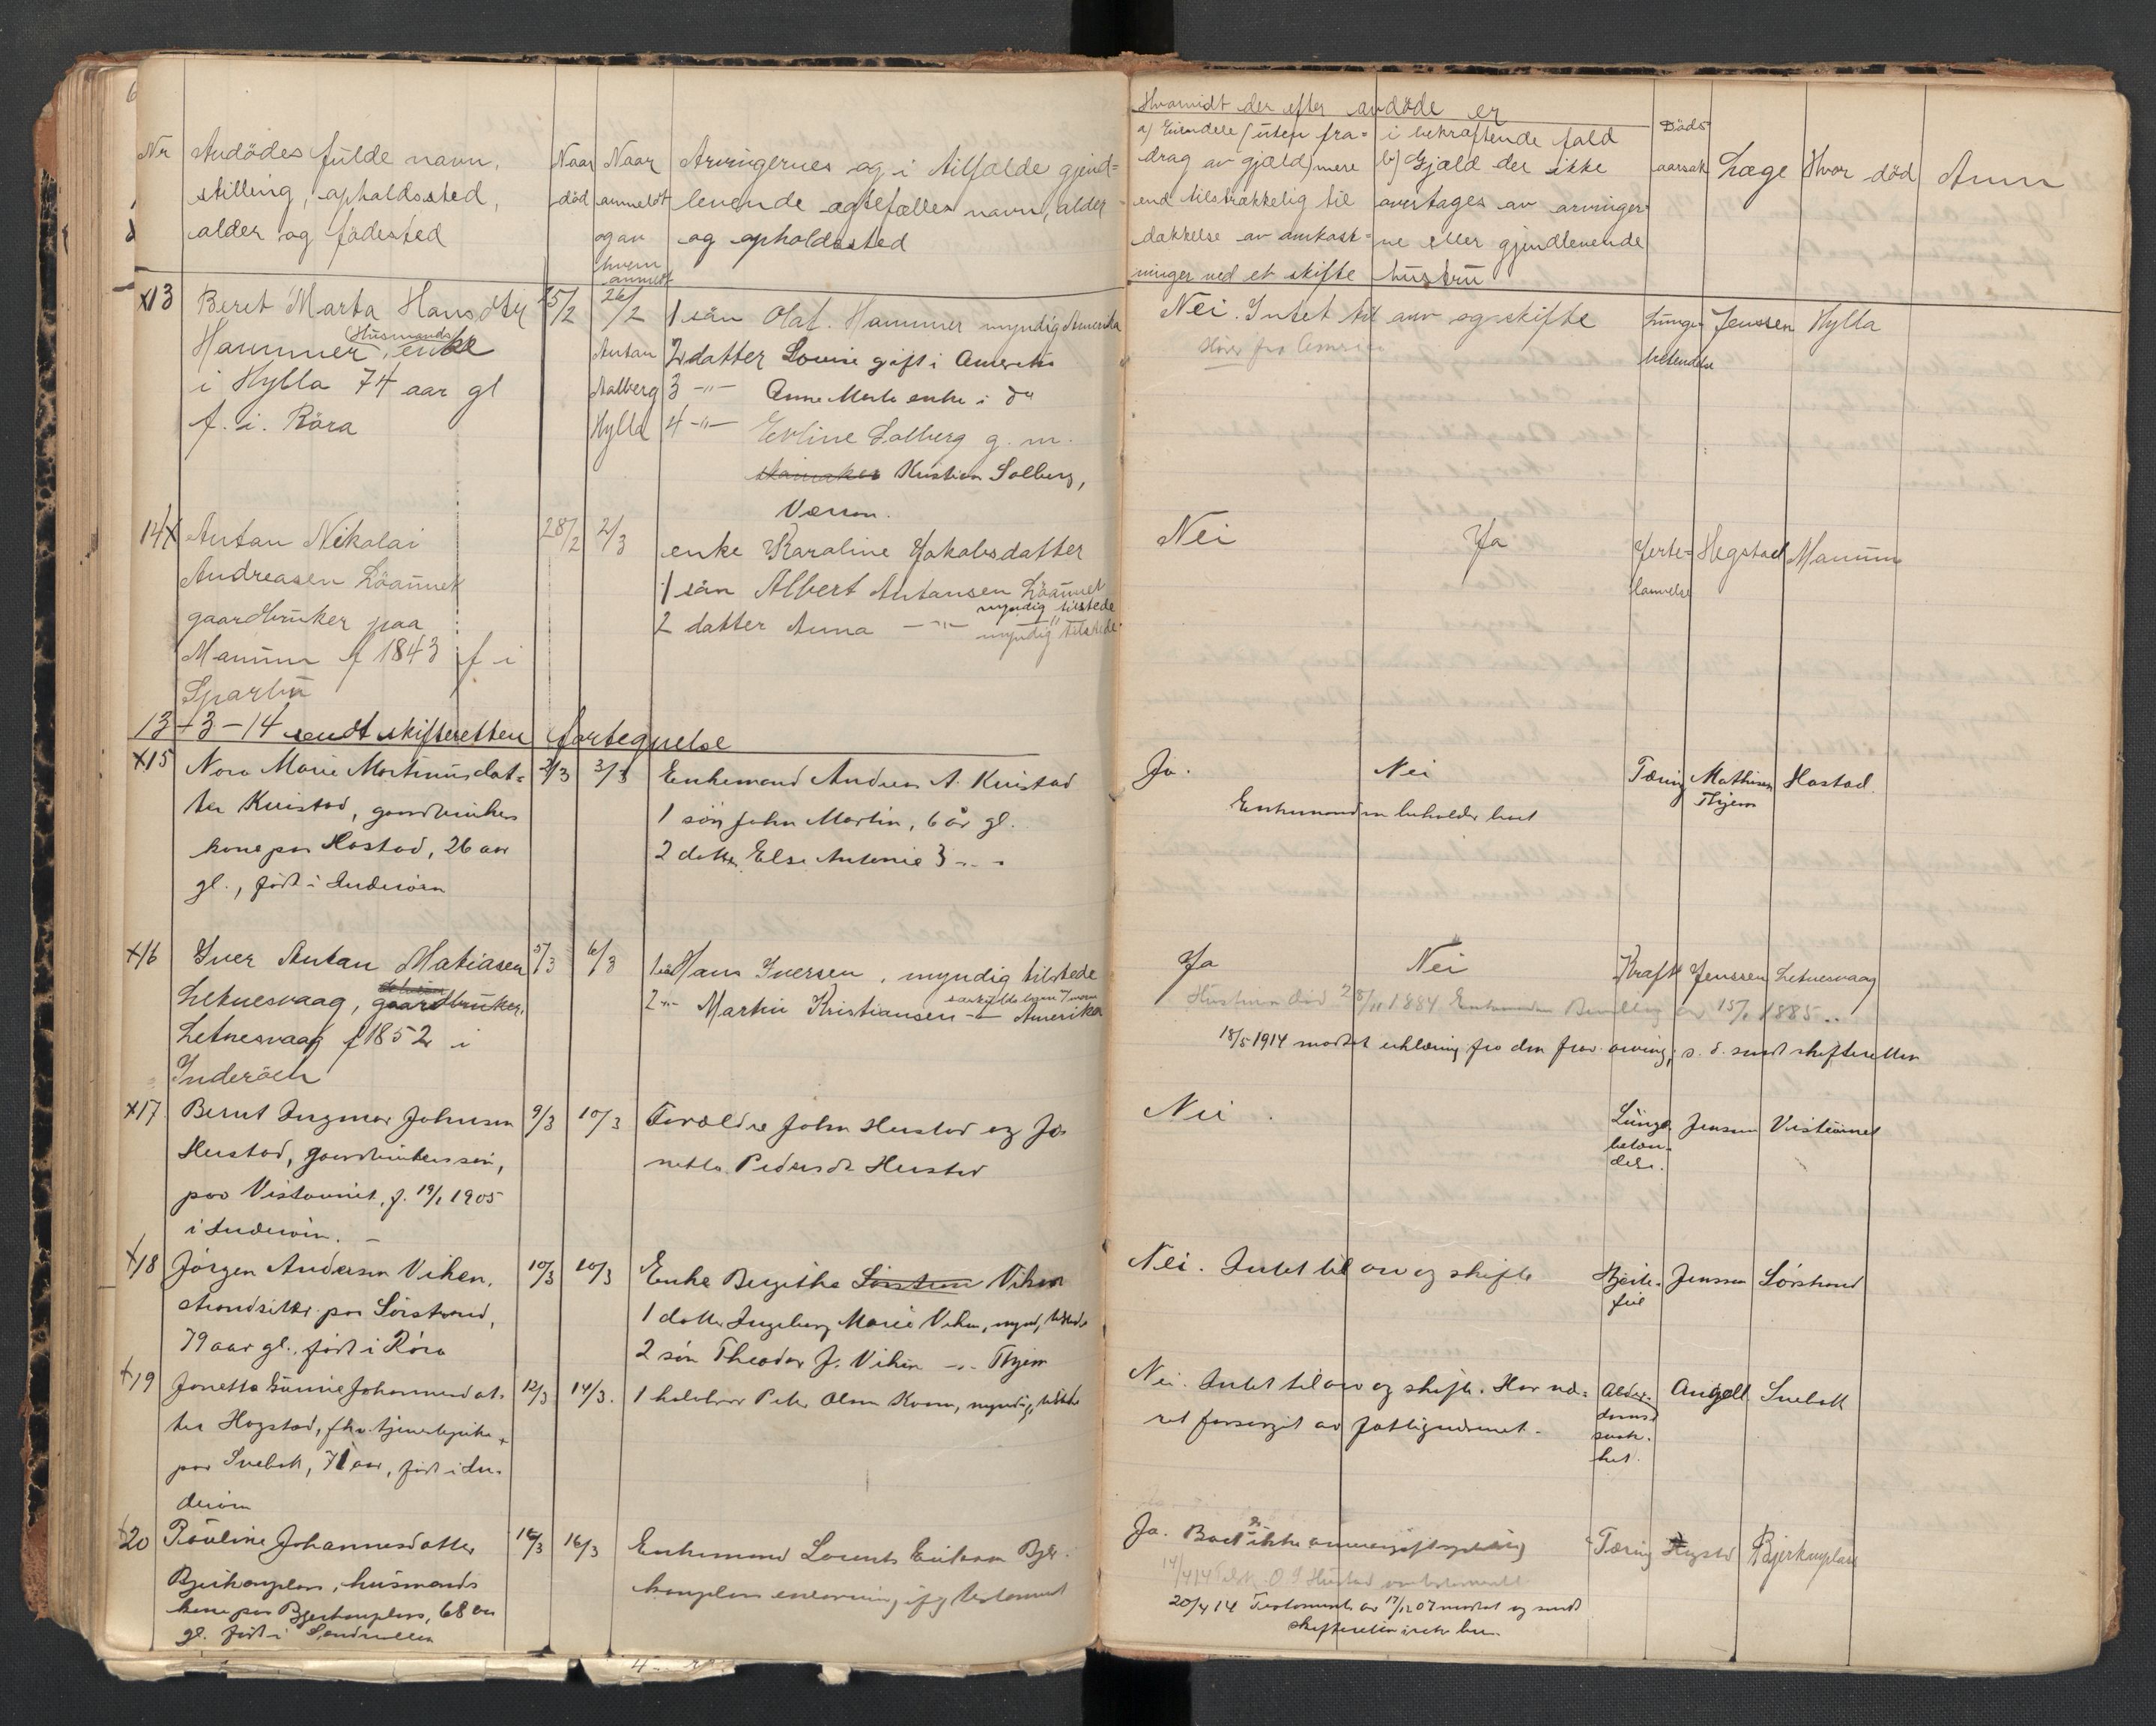 Nr
Avdödes fulde navn,
stilling, opholdssted,
alder og födested
Naar
död
Naar
anmeldt
og av
hvem
anmeldt
Arvingernes og i tilfælde gjend=
levende ægtefælles navn, alder
og opholdssted
Hvorvidt der efter avdöde er
a) Eiendele (uten fra=
drag av gjæld) mere
end tilstrækkelig til
dækkelse av omkost=
ninger ved et skifte
i bekræftende fald
b) Gjæld der ikke
overtages av arvinger=
ne eller gjendlevende
hustru
Döds
aarsak
Læge
Hvor död
Anm
x13
Beret Marta Hansdtr
Husmands
Hammer, enke
i Hylla 74 aar gl
f. i. Röra
25/2
26/2
Anton
Aalberg
Hylla
1 sön Olaf. Hammer myndig Amerika
2 datter Lovise gift i Amerika
3 -"- Anne Marta enke i do
4 -"- Evline Solberg g. m.
Kristian Solberg,
Værran.
Nei. Intet til arv og skifte
Lunge
betendelse
Jenssen
Hylla
14x
Anton Nikolai
Andreasen Löannet
gaardbruker paa
Mannum f 1843 f i
Sparbu
28/2
2/3
enke Karoline Jakobsdatter
1 sön Albert Antonsen Löannet
myndig tilstede
2 datter Anna -"- myndig tilstede
Nei
Ja
Hjerte=
lammelse
Hegstad
Mannum
13-3-14 sendt skifteretten fortegnelse
x15
Nora Marie Martinusdat=
ter Kvistad, gaardbrukers
kone paa Hastad, 26 aar
gl., født i Inderøen
2/3
3/3
Enkemand Andreas A. Kvistad
1 søn John Martin, 6 år gl.
2 datter Else Antonie 3 -"-
Ja.
Nei
Enkemanden beholder boet
Tæring
Mathisen
Thjem
Hastad.
x16
Iver Antan Matiasen
Letnesvaag, gaardbruker.
Letnesvaag f 1852 i
Inderöen
5/3
6/3
1 sön Hans Iversen, myndig tilstede
2 -"- Martin Kristiansen -"- Amerika
Ja
Nei
Kræft
Jenssen
Letnesvaag
Hustruen död 28/11 1884 Enkemanden Bevilling av 15/1 1885
18/5 1914 mottat erklæring fra den frav. arving, s. d. sendt skifteretten
x17
Bernt Ingmar Johnsen
Heistad, gaardbrukersøn,
paa Vistvannet, f. 19/1 1905
i Inderøen.
9/3
10/3
Forældre John Heistad og Jo
netta Pedersdt Heistad
Nei
Lunge
beten-
delse.
Jenssen
x18
Jørgen Andersen Viken,
strandsitter paa Sørstrand,
79 aar gl., født i Röra
10/3
10/3
Enke Bergitha Viken
1 datter Ingeborg Marie Viken, mynd, tilstede
2 søn Theodor J. Viken -"- Thjem
Nei. Intet til arv og skifte
Hjerte-
feil
Jenssen
Sørstrand
x19
Jonetta Gunnie Johannesdat=
ter Hogstad, fhv. tjenestepike
paa Snebak, 71 aar, født i In=
derøen
12/3
14/3.
1 halvbror Peter Olsen Kvam, myndig, tilstede
Nei. Intet til arv og skifte. Har væ=
ret forsørget av fattigvæsenet.
Alder-
doms
svak-
het.
Angell
x20
Pauline Johannesdatter
Bjerkenplass, husmands
kone paa Bjerkenplass, 68 aar
gl. født i
16/3
16/3
Enkemand Lorents Eriksen Bjer-
kenplass enearving ifg testament
Ja.
Tæring
Hegstad
Bjerkenplass
20/4 14 Testamente av 17/12 07 mottat og sendt
skifteretten